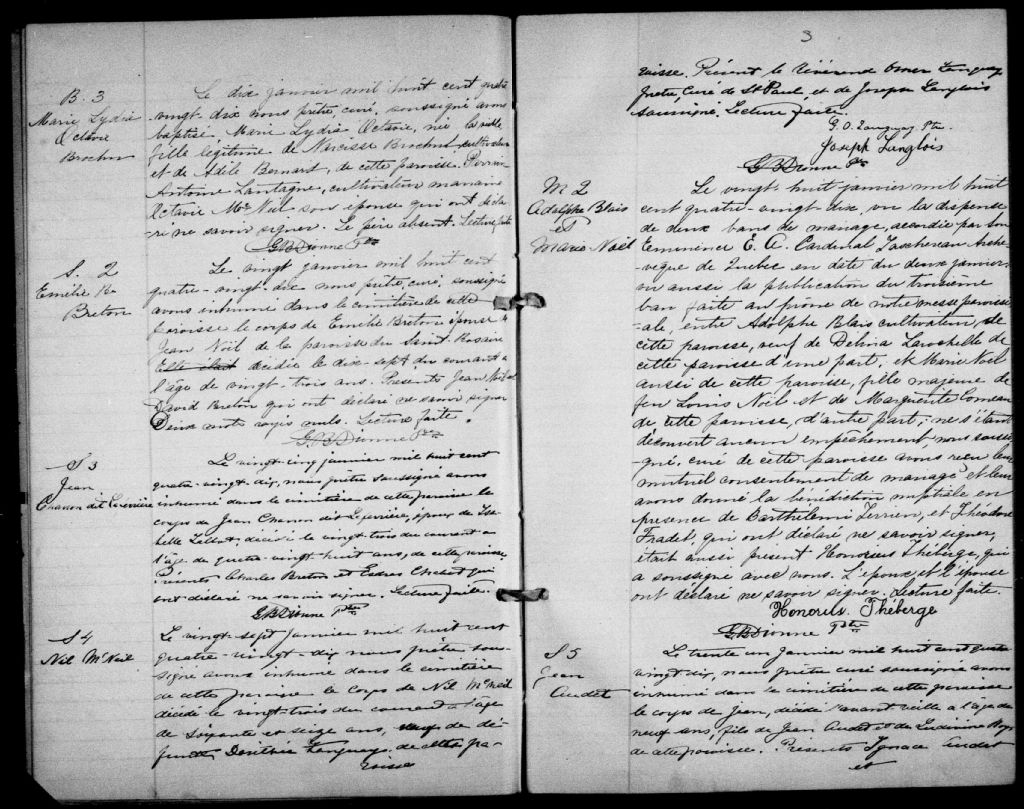 B. 3
Marie Lydie
Octavie
Brochu
Le dix janvier mil huit cent quatre
vingt-dix nous prêtre, curé, soussigné avons
baptisé Marie Lydie Octavie, née la veille
fille légitime de Narcisse Brochu cultivateur
et de Adèle Bernard, de cette paroisse. Parrain
Antoine Lantagne, cultivateur marraine
Octavie McNeil son épouse qui ont décla-
-ré ne savoir signer. Le père absent. Lecture faite
G B Dionne Ptre
S. 2
Emélie
Breton
Le vingt janvier mil huit cent
quatre-vingt-dix nous prêtre, curé, soussigné
avons inhumé dans le cimitière de cette
paroisse le corps de Emélie Breton épouse de
Jean Noël de la paroisse du Saint Rosaire
Elle était décédée le dix-sept du courant à
l'âge de vingt-trois ans. Présents Jean Noël et
David Breton qui ont déclaré ne savoir signer
Deux mots rayés nuls. Lecture faite
G B Dionne Ptre
S 3
Jean
Chanon dit Laferrière
Le vingt-cinq janvier mil huit cent
quatre-vingt-dix, nous prêtre soussigné avons
inhumé dans le cimitière de cette paroisse le
corps de Jean Chanon dit Laferrière, époux de Isa-
belle décédé le vingt-trois du courant à
l'âge de quatre-vingt huit ans, de cette paroisse
Présents Charles Breton et qui
ont déclaré ne savoir signer. Lecture faite.
G B Dionne Ptre
S 4
Nil McNeil
Le vingt-sept janvier mil huit cent
quatre-vingt-dix nous prêtre sous-
signé avons inhumé dans le cimitière
de cette paroisse le corps de Nil McNeil
décédé le vingt-trois du courant à l'âge
de soixante et seize ans, veuf de dé-
funte Dorithée Tanguay de cette pa-
roisse
3
roisse. Présent le Révérend Omer Tanguay
Prêtre, Curé de St Paul, et de Joseph Langlois
soussigné. Lecture faite.
G. O. Tanguay Ptre
Joseph Langlois
G B Dionne Ptre
M 2
Adolphe Blais
et
Marie Noël
Le vingt-huit janvier mil huit
cent quatre-vingt-dix, vu la dispense
de deux bans de mariage, accordée par Son
Eminence E. A. Cardinal Taschereau Arche-
vêque de Quebec en date du deux janvier,
vu aussi la publication du troisième
ban faite au prône de notre messe paroissi-
-ale, entre Adolphe Blais cultivateur, de
cette paroisse, veuf de Délvina Larochelle de
cette paroisse d'une part, et Marie Noël
aussi de cette paroisse, fille majeure de
feu Louis Noël et de Marguerite Comeau
de cette paroisse, d'autre part; ne s'étant
découvert aucun empêchement nous soussi-
gné, curé de cette paroisse avons reçu leur
mutuel consentement de mariage et leur
avons donné la bénédiction nuptiale en
présence de Barthélemi Terrien, et Théodore
Fradet, qui ont déclaré ne savoir signer,
était aussi présent Honorius Théberge, qui
a soussigné avec nous. L'époux et l'épouse
ont déclaré ne savoir signer. Lecture faite.
Honorius Théberge
G B Dionne Ptre
S 5
Jean
Audet
Le trente un janvier mil huit cent quatre
vingt dix, nous prêtre curé soussigné avons
inhumé dans le cimitière de cette paroisse
le corps de Jean, décédé l'avant veille à l'âge de
neuf ans, fils de Jean Audet et de Roy
de cette paroisse. Présents Ignace Audet
et